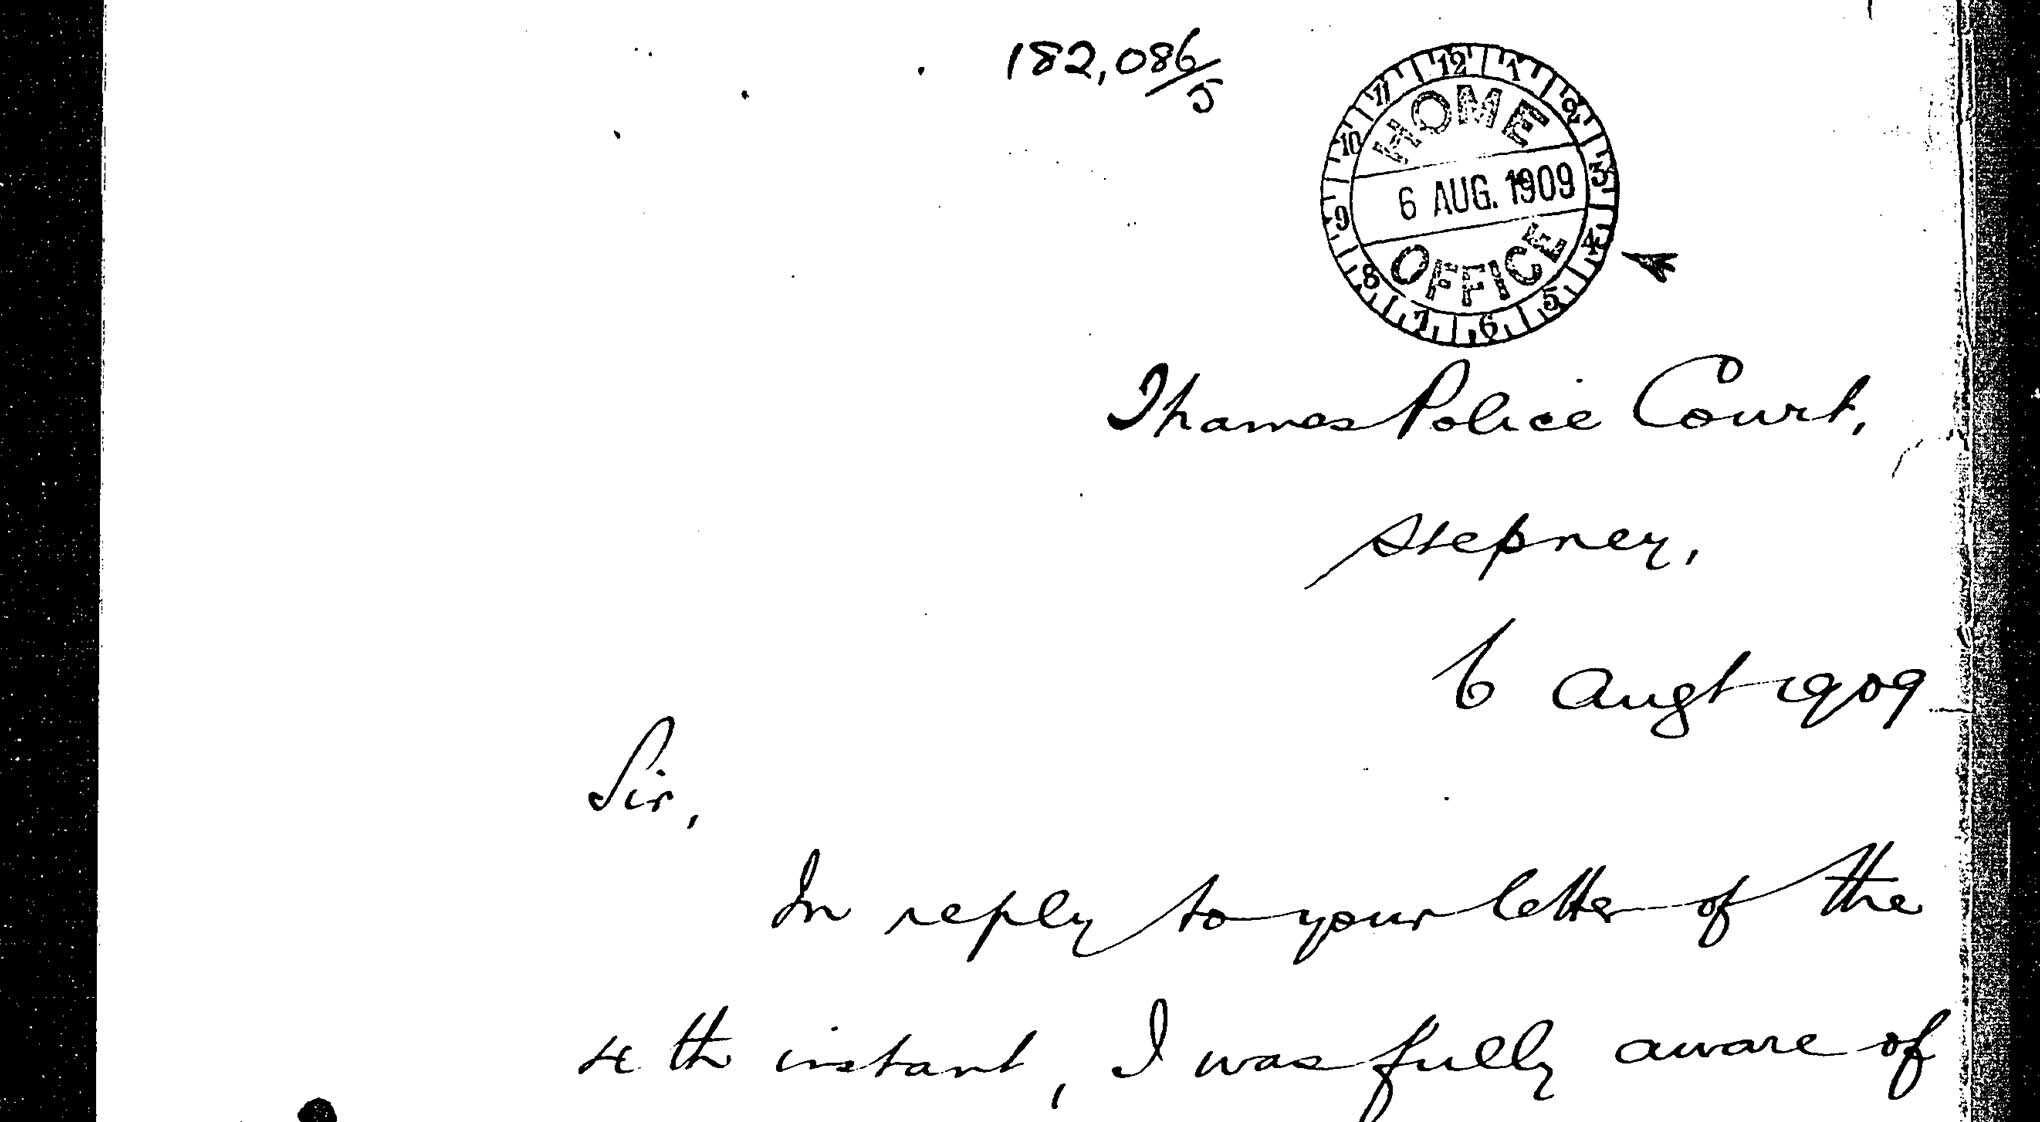 182,086/5
12 1 2 3 4 5 6 7 8 9 10 11
HOME
6 AUG. 1909
OFFICE
Thames Police Court,
Stepney,
6 Augt 1909
Sir,
In reply to your letter of the
4th instant, I was fully aware of